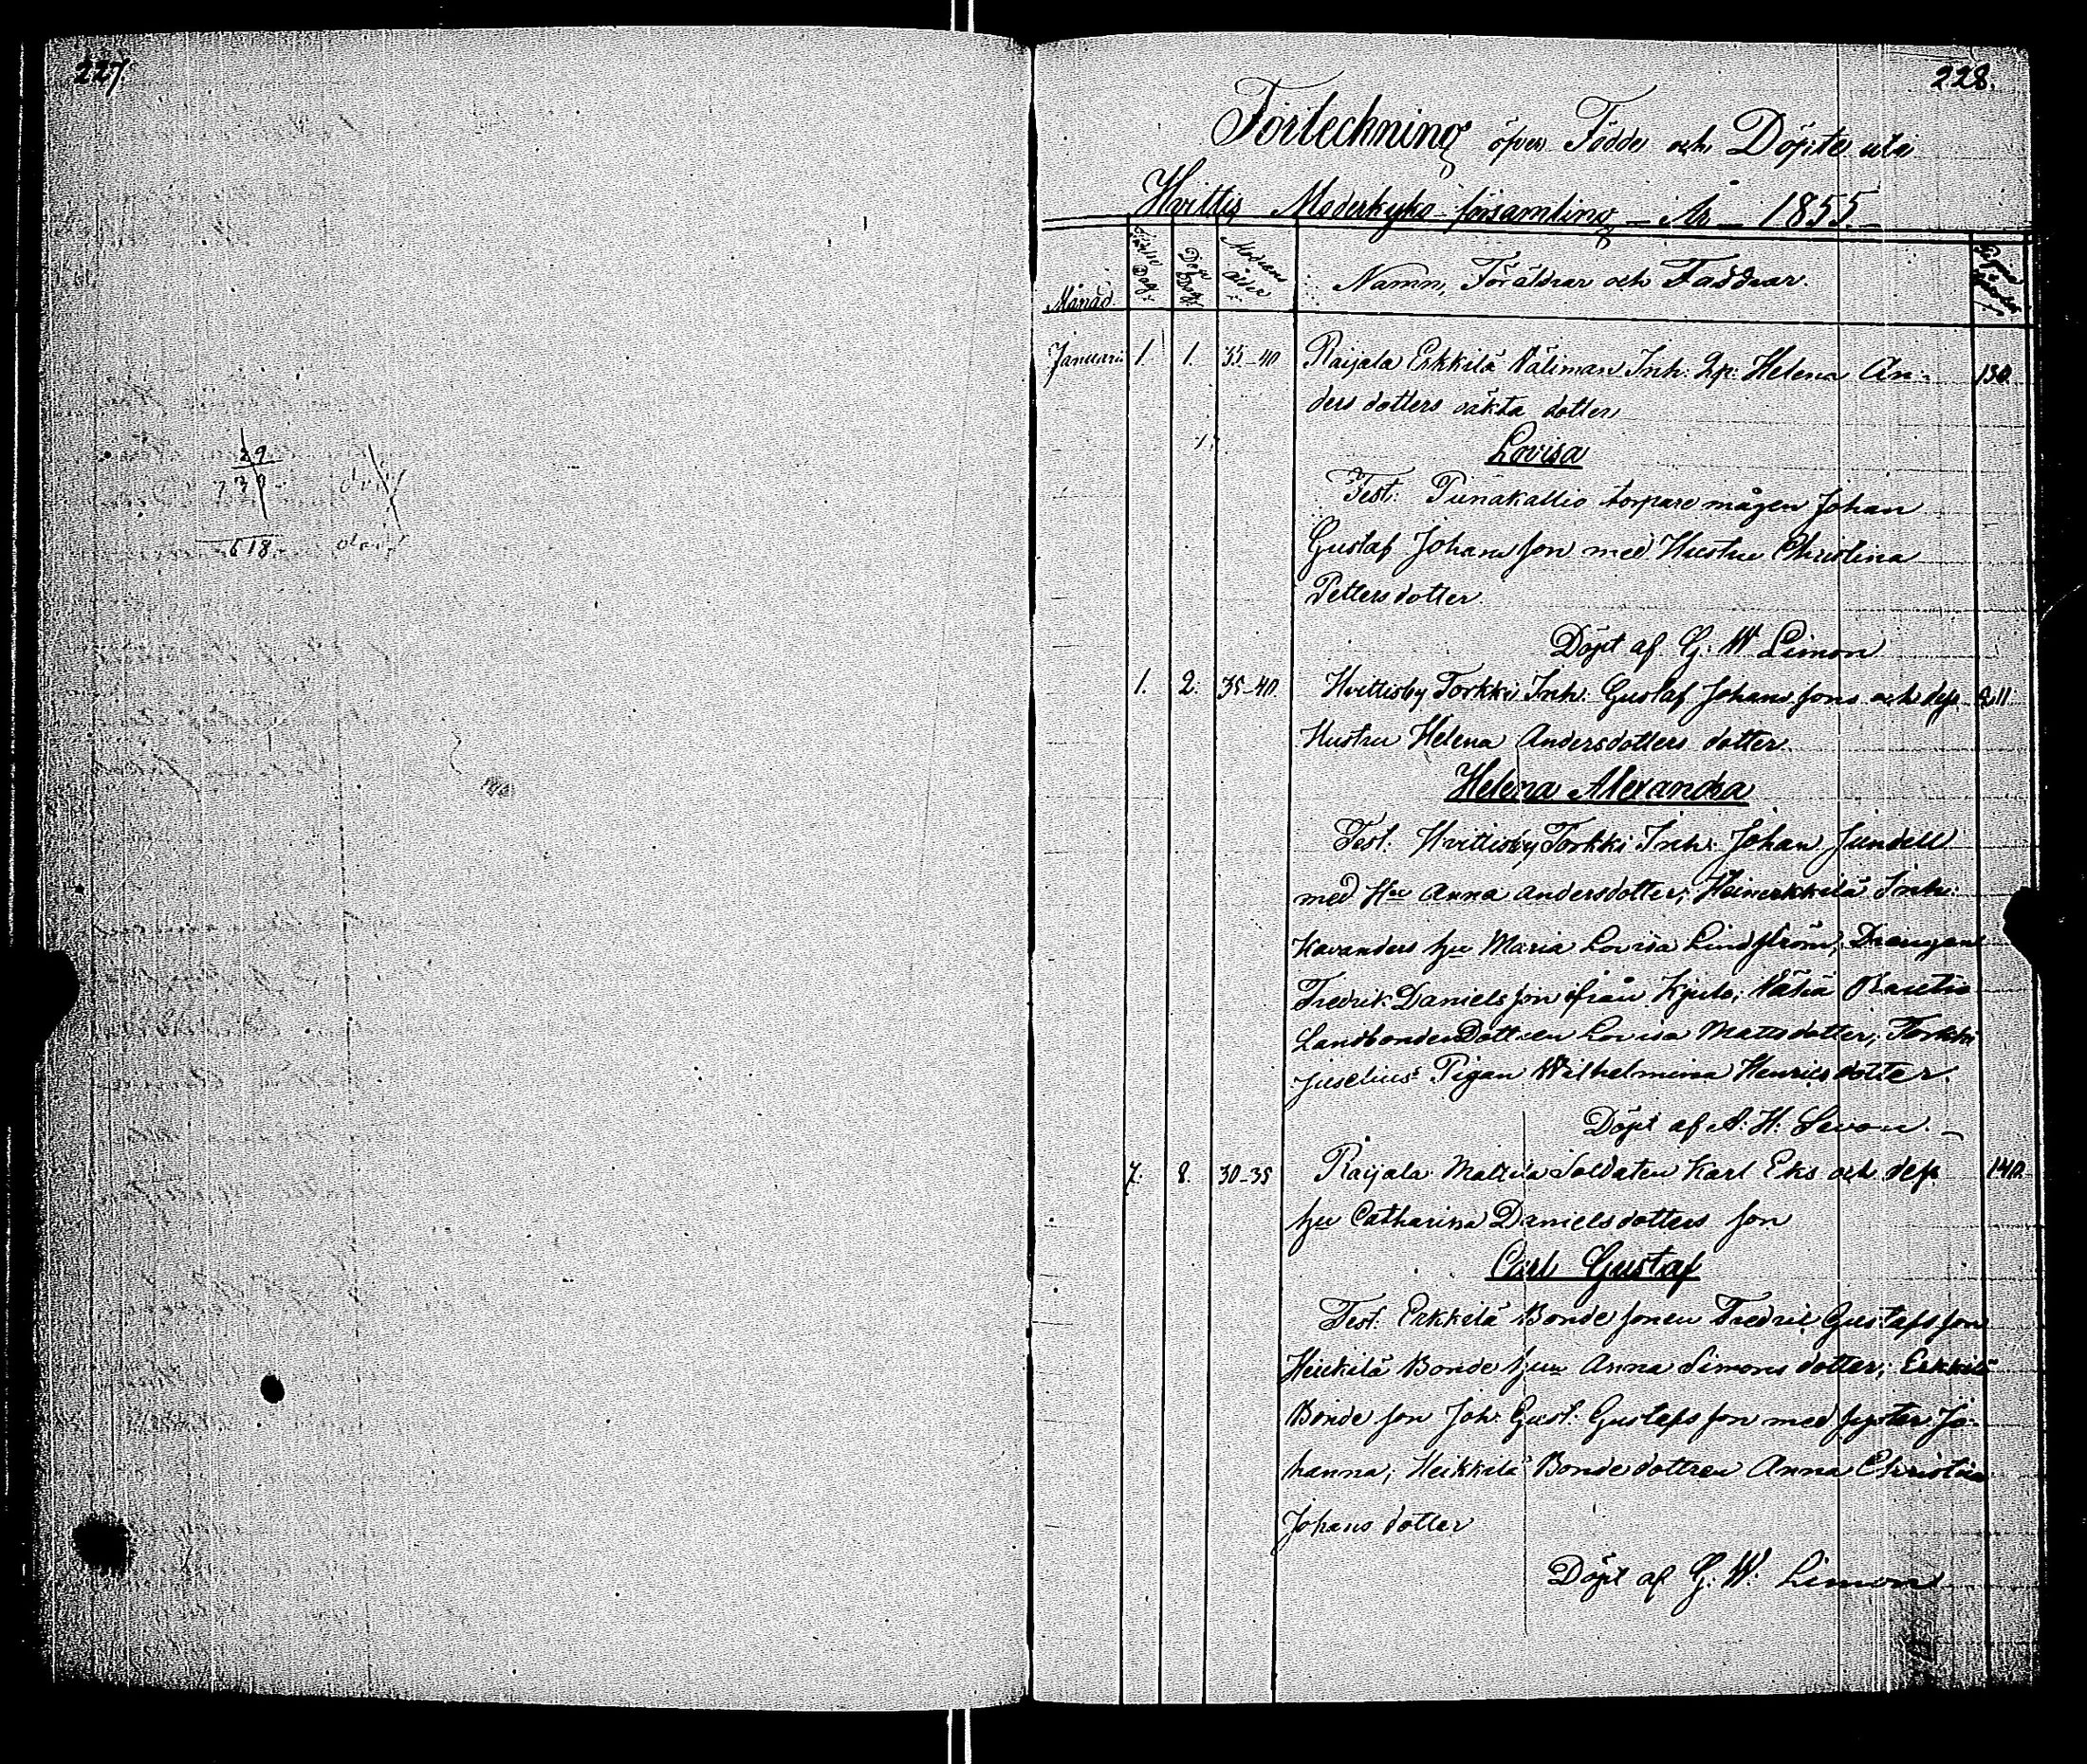 227.
29
730
618.
228.
Förteckning öfver Födde och Döpte uti
Hvittis Moderkyrko församling – År – 1855.
Månad
Födelse Dag
Döpe Dag
Modrens ålder
Namn, Föräldrar och Faddrar.
Januarii 1. 1. 35–40 Raijala Erkkilä Väliman Inh: Qp: Helena An- 130.
ders dotters oäkta dotter
Lovisa
Test: Piinakallio torpare mågen Johan
Gustaf Johansson med Hustru Christina
Pettersdotter.
Döpt af G. W Limon
1. 2. 35–40. Hvittisby Torkki Inh: Gustaf Johanssons och dess 211.
Hustru Helena Andersdotters dotter
Helena Alexandra
Test: Hvittisby Torkki Inh: Johan Jundell
med Hu Anna Andersdotter; Heinerkkilä Inh:
Kavanders hu Maria Lovisa Lindström; Drängen
Fredrik Danielsson ifrån Kjulo; Rautio
Landbonden Dottren Lovisa Mattsdotter; Torkki
Juselius Pigan Wilhelmina Henricsdotter.
Döpt af A: H: Levon. –
7. 8. 30–35 Raijala Mattila Soldaten Karl Eks och dess 140.
hu Catharina Danielsdotters son
Carl Gustaf
Test: Erkkilä Bonde sonen Fredric Gustafsson
Heikkilä Bonde hun Anna Simonsdotter; Erkkilä
Bonde son Joh: Gust: Gustafsson med syster Jo-
hanna; Heikkilä Bondedottren Anna Christina
Johansdotter
Döpt af G. W. Limon